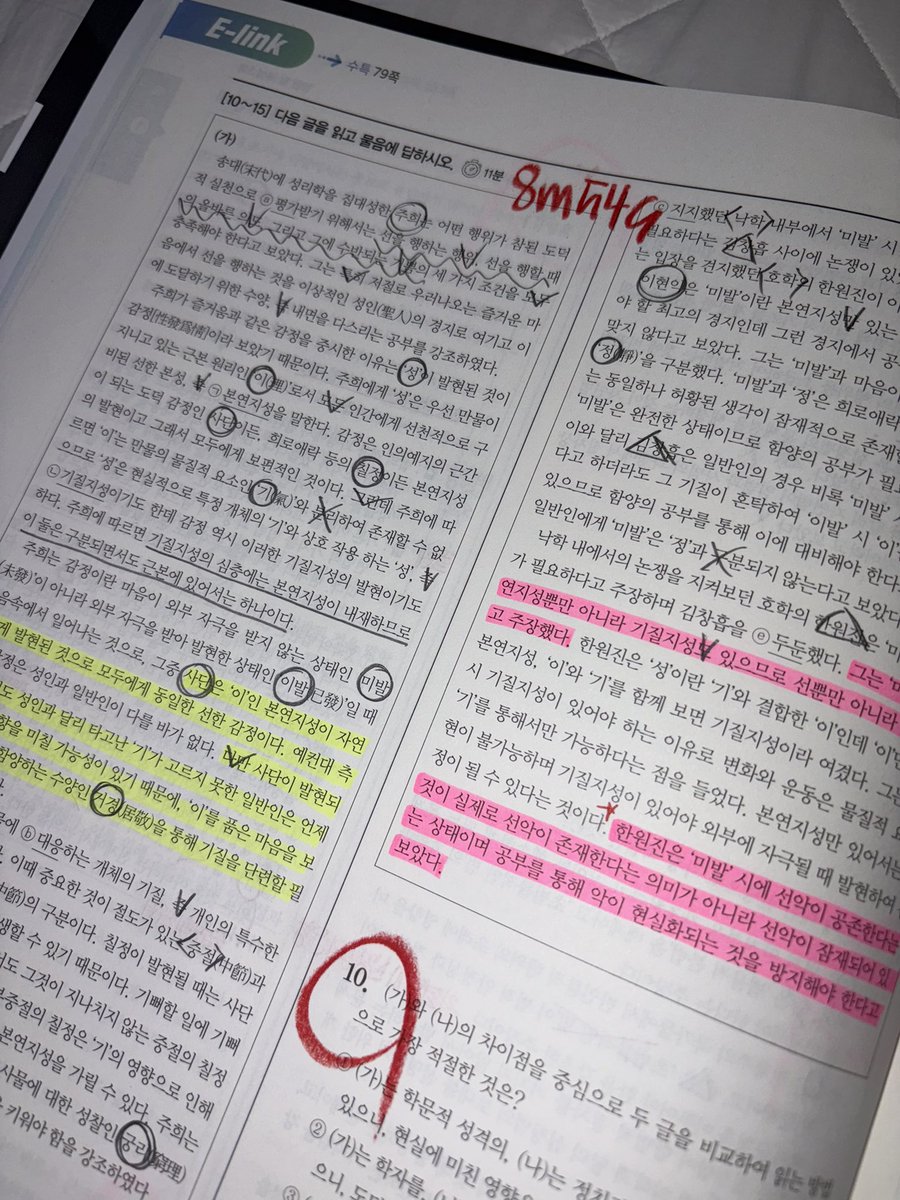 E-link
수특 79쪽
[10~15] 다음 글을 읽고 물음에 답하시오. 11분
8m 54
(가)
송대(宋代)에 성리학을 집대성한 주희는 어떤 행위가 참된 도덕
적 실천으로 ⓐ평가받기 위해서는 선을 행하는 행위, 선을 행할 때
의 올바른 의도, 그리고 그에 수반되는 의 세 가지 조건을 모두
충족해야 한다고 보았다. 그는 저절로 우러나오는 즐거운 마
음에서 선을 행하는 것을 이상적인 성인(聖人)의 경지로 여기고 이
에 도달하기 위한 수양, 즉 내면을 다스리는 공부를 강조하였다.
주희가 즐거움과 같은 감정을 중시한 이유는 '성'이 발현된 것이
감정(性發爲情)이라 보았기 때문이다. 주희에게 '성'은 우선 만물이
지니고 있는 근본 원리인 이(理)로서 모든 인간에게 선천적으로 구
비된 선한 본성, 즉 ㉠본연지성을 말한다. 감정은 인의예지의 근간
이 되는 도덕 감정인 사단이든, 희로애락 등의 칠정이든 본연지성
의 발현이고 그래서 모두에게 보편적인 것이다. 그런데 주희에 따
르면 '이'는 만물의 물질적 요소인 기(氣)와 분리하여 존재할 수 없
으므로 '성'은 현실적으로 특정 개체의 '기'와 상호 작용 하는 '성', 즉
㉡기질지성이기도 한데 감정 역시 이러한 기질지성의 발현이기도
하다. 주희에 따르면 기질지성의 심층에는 본연지성이 내재하므로
이 둘은 구분되면서도 근본에 있어서는 하나이다.
주희는 감정이란 마음이 외부 자극을 받지 않는 상태인 미발
(未發)'이 아니라 외부 자극을 받아 발현한 상태인 이발(已發)'일 때
음속에서 일어나는 것으로, 그중 사단은 '이'인 본연지성이 자연
게 발현된 것으로 모두에게 동일한 선한 감정이다. 예컨대 측
감정은 성인과 일반인이 다를 바가 없다. 다만 사단이 발현되
도 성인과 달리 타고난 '기'가 고르지 못한 일반인은 언제
향을 미칠 가능성이 있기 때문에, '이'를 품은 마음을 보
함양하는 수양인 거경(居敬)을 통해 기질을 단련할 필
다.
문에 ⓑ대응하는 개체의 기질, 즉 개인의 특수한
. 이때 중요한 것이 절도가 있는 중절(中節)과
中節)의 구분이다. 칠정이 발현될 때는 사단
생할 수 있기 때문이다. 기뻐할 일에 기뻐
서도 그것이 지나치지 않는 중절의 칠정
부중절의 칠정은 '기'의 영향으로 인해
본연지성을 가릴 수 있다. 주희는
사물에 대한 성찰인 궁리(窮理)
키워야 함을 강조하였다
ⓒ지지했던 낙학 내부에서 '미발' 시
필요하다는 김창흡 사이에 논쟁이 있
는 입장을 견지했던 호학의 한원진이 이
이현익은 '미발'이란 본연지성만 있는
야 할 최고의 경지인데 그런 경지에서 공
맞지 않다고 보았다. 그는 '미발'과 마음이
정(靜)'을 구분했다. '미발'과 '정'은 희로애락
는 동일하나 허황된 생각이 잠재적으로 존재한
'미발'은 완전한 상태이므로 함양의 공부가 필요
이와 달리 김창흡은 일반인의 경우 비록 '미발'
다고 하더라도 그 기질이 혼탁하여 '이발' 시 '이'
있으므로 함양의 공부를 통해 이에 대비해야 한다
일반인에게 '미발'은 '정'과 구분되지 않는다고 보았다
낙학 내에서의 논쟁을 지켜보던 호학의 한원진은 '미
가 필요하다고 주장하며 김창흡을 ⓔ두둔했다. 그는 '미
연지성뿐만 아니라 기질지성도 있으므로 선뿐만 아니라
고 주장했다. 한원진은 '성'이란 '기'와 결합한 '이'인데 '이'만
본연지성, '이'와 '기'를 함께 보면 기질지성이라 여겼다. 그는
시 기질지성이 있어야 하는 이유로 변화와 운동은 물질적 요
'기'를 통해서만 가능하다는 점을 들었다. 본연지성만 있어서는
현이 불가능하며 기질지성이 있어야 외부에 자극될 때 발현하여
정이 될 수 있다는 것이다. 한원진은 '미발' 시에 선악이 공존한다는
것이 실제로 선악이 존재한다는 의미가 아니라 선악이 잠재되어 있
는 상태이며 공부를 통해 악이 현실화되는 것을 방지해야 한다고
보았다.
10. (가)와 (나)의 차이점을 중심으로 두 글을 비교하여 읽는 방법
으로 가장 적절한 것은?
① (가)는 학문적 성격의, (나)는 정치
있으니, 현실에 미친 영향
② (가)는 화자를, (나)
으니, 도
③